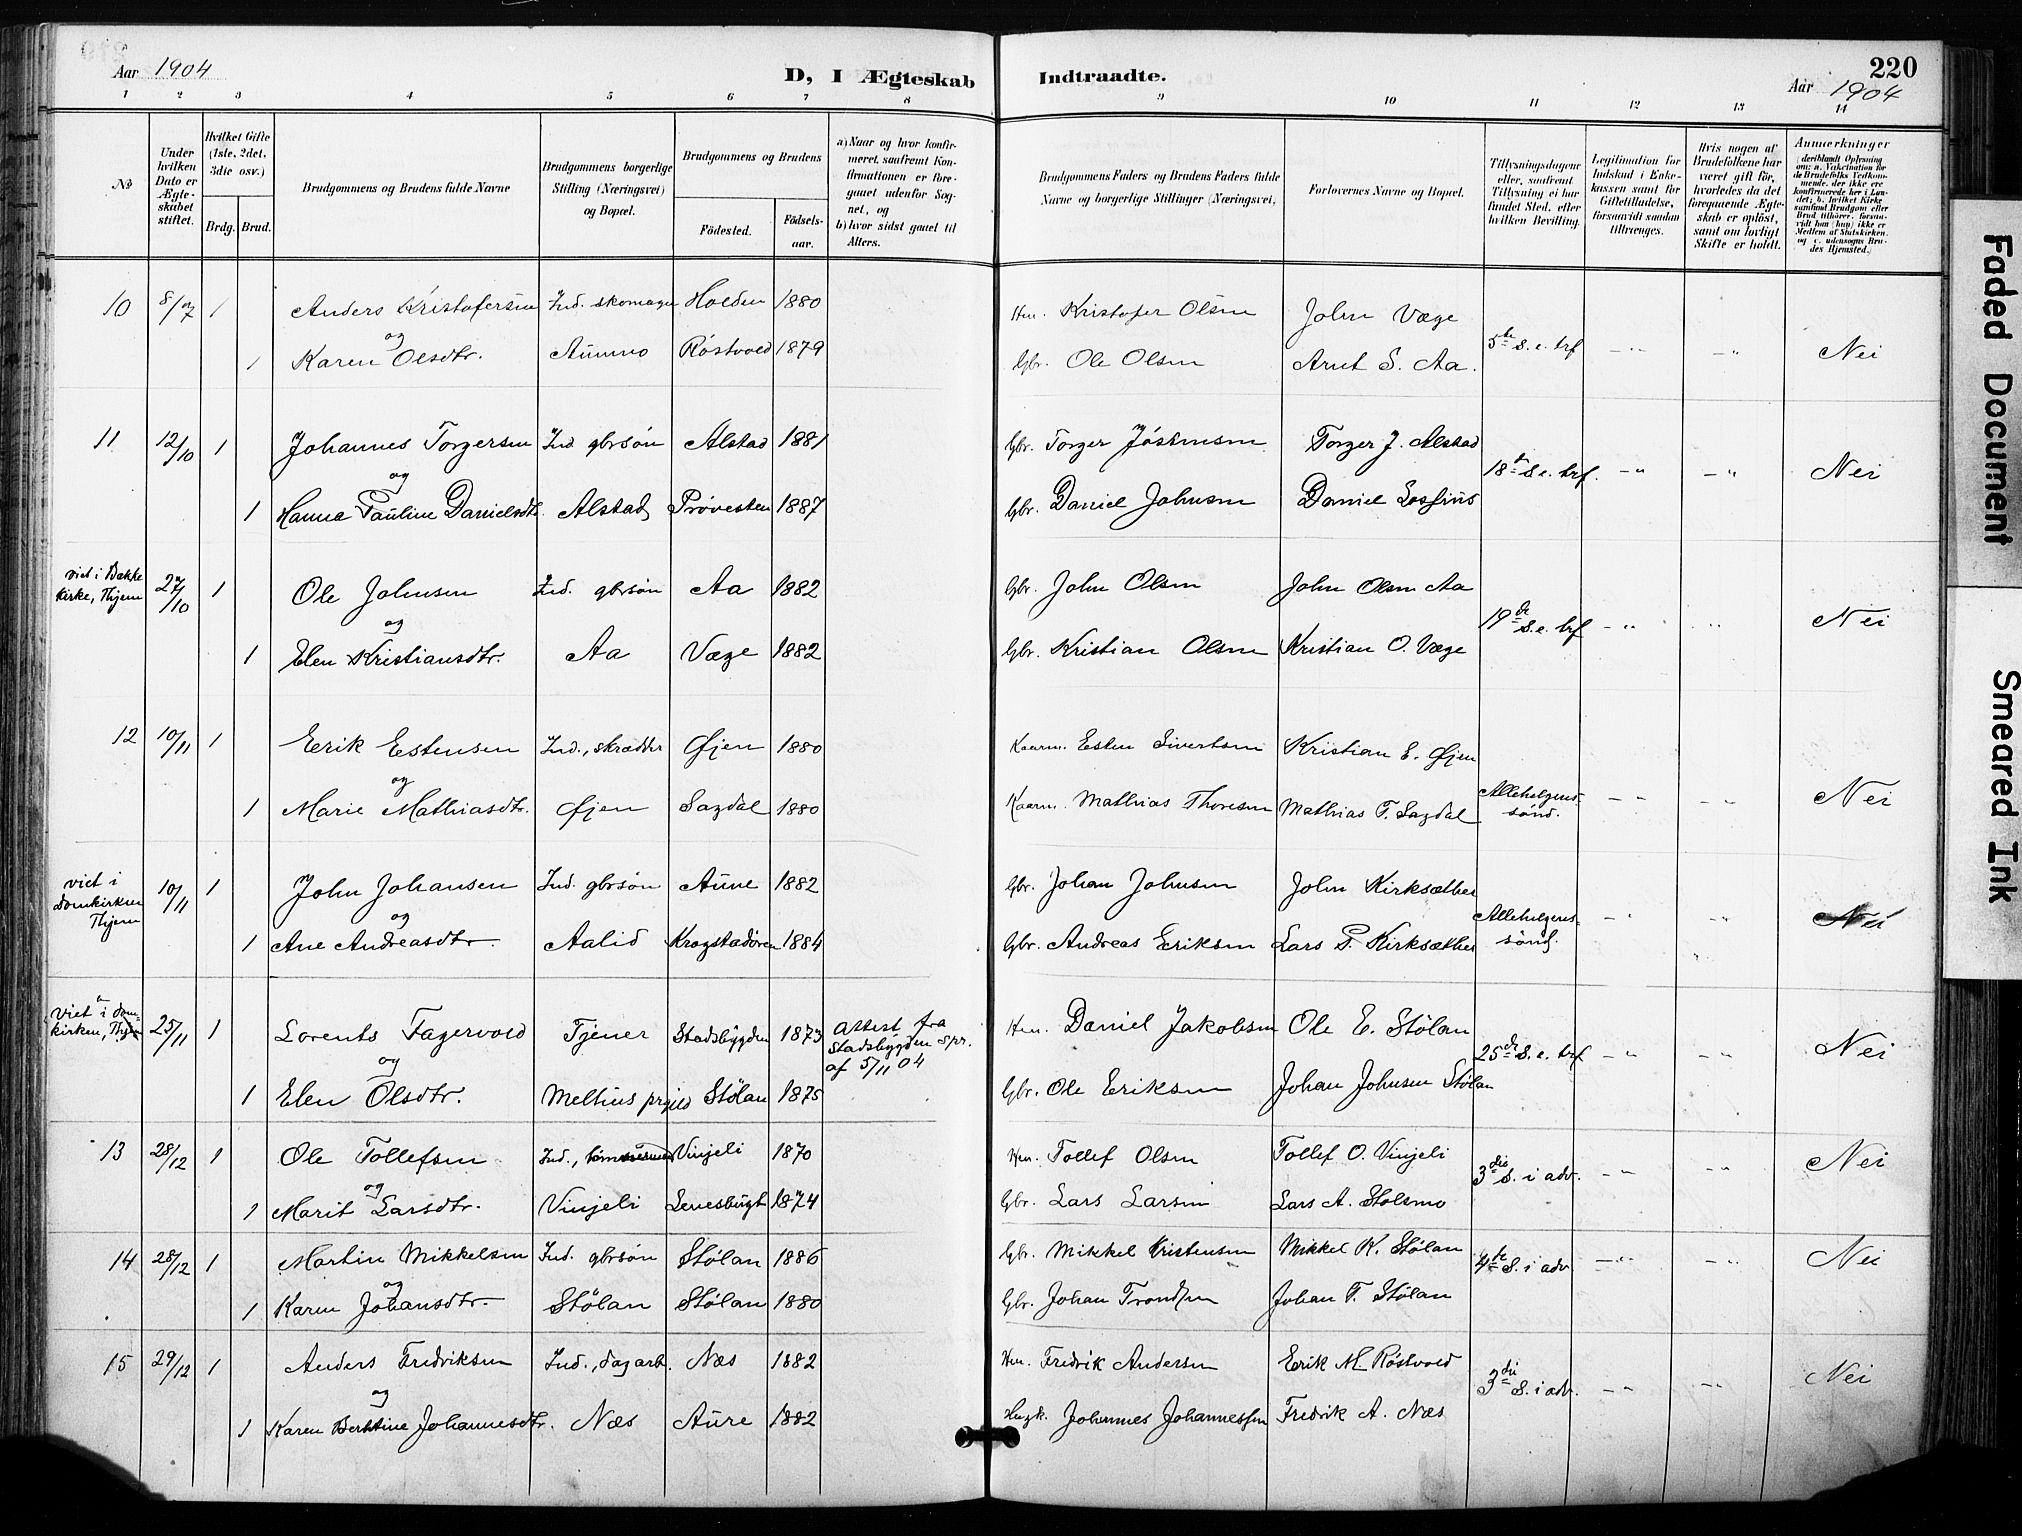 Aar 1904
D, I Ægteskab
Indtraadte.
220
Aar 1904
1 2 3 4 5 6 7 8 9 10 11 12 13 14
No
Under hvilken Dato er Ægteskabet stiftet.
Hvilket Gifte (1ste, 2det, 3die osv.)
Brdg. Brud.
Brudgommens og Brudens fulde Navne
Brudgommens borgerlige Stilling (Næringsvei) og Bopæl.
Brudgommens og Brudens
Fødested. Fødselsaar.
a) Naar og hvor konfirmeret, saafremt Konfirmationen er foregaaet udenfor Sognet, og
b) hvor sidst gaaet til Alters.
Brudgommens Faders og Brudens Faders fulde Navne og borgerlige Stillinger (Næringsvei,
Forlovernes Navne og Bopæl.
Tillysningsdagene eller, saafremt Tillysning ei har fundet Sted, efter hvilken Bevilling.
Legitimation for Indskud i Enkekassen samt for Giftetilladelse, forsaavidt saadan tiltrænges.
Hvis nogen af Brudefolkene har været gift før, hvorledes da det foregaaende Ægteskab er opløst, samt om lovligt Skifte er holdt.
Anmærkninger
(deriblandt Oplysning om: a. Vakcination for de Brudefolks Vedkommende, der ikke ere konfirmerede her i Landet; b. hvilket Kirkesamfund Brudgom eller Brud tilhører, forsaavidt han (hun) ikke er Medlem af Statskirken, og c. udensogns Brudes Hjemsted.)
10 8/7 1 Anders Kristofersen Ind. skomager Holden 1880 Hm. Kristofer Olsen John Væge
og
1 Karen Olsdtr. Aunmo Röstvold 1879 Gbr. Ole Olsen Arnt S. Aa.
5te S. e. trf — " — " Nei
11 12/10 1 Johannes Torgersen Ind gbrsön Alstad 1881 Gbr. Torger Jössensen Torger J. Alstad
og
1 Hanna Pauline Danielsdtr. Alstad Prövesten 1887 Gbr. Daniel Johnsen Daniel Lossius
18de S. e. trf. — " — " Nei
viet i Bakke kirke, Thjem
27/10 1 Ole Johnsen Ind. gbrsön Aa 1882 Gbr. John Olsen John Olsen Aa
og
1 Elen Kristiansdtr. Aa Væge 1882 Gbr. Kristian Olsen Kristian O. Væge
19de S. e. trf — " " Nei
12 10/11 1 Eerik Estensen Ind., skrædder Øjen 1880 Kaarm. Esten Sivertsen Kristian E. Øjen
og
1 Marie Mathiasdtr. Øjen Sagdal 1880 Kaarm. Mathias Thoresen Mathias T. Sagdal
Allehelgens sønd. — " — " Nei
viet i Domkirken Thjem
10/11 1 John Johansen Ind. gbrsön Aune 1882 Gbr. Johan Johnsen John Kirksæther
og
1 Ane Andreasdtr. Aalid Krogstadören 1884 Gbr. Andreas Eriksen Lars P. Kirksæther
Allehelgens sønd. — " — " Nei
Viet i domkirken, Thjem
25/11 1 Lorents Fagervold Tjener Stadsbygden 1873 Attest fra Stadsbygden spr. af 5/11 04 Hm. Daniel Jakobsen Ole E. Stölan
og
1 Elen Olsdtr. Melhus prgjld Stölan 1875 Gbr. Ole Eriksen Johan Johnsen Stölan
25de S. e. trf — " — " Nei
13 28/12 1 Ole Tollefsen Ind., tömmermand Vinjeli 1870 Hm. Tollef Olsen Tollef O. Vinjeli
og
1 Marit Larsdtr. Vinjeli Lenesbugt 1874 Gbr. Lars Larsen Lars A. Stolsmo
3die S. i adv. — " — " Nei
14 28/12 1 Martin Mikkelsen Ind. gbrsön Stölan 1886 Gbr. Mikkel Kristensen Mikkel K. Stölan
og
1 Karen Johansdtr. Stölan Stölan 1880 Gbr. Johan Trondsen Johan T. Stölan
4de S. i adv. — " — " Nei
15 29/12 1 Anders Fredriksen Ind., dagarb. Næs 1882 Hm. Fredrik Andersen Eerik M. Röstvold
og
1 Karen Berntine Johannesdtr. Næs Aure 1882 Husk. Johannes Johannessen Fredrik A. Næs
3die S. i adv. — " — " Nei
Faded Document
Smeared Ink